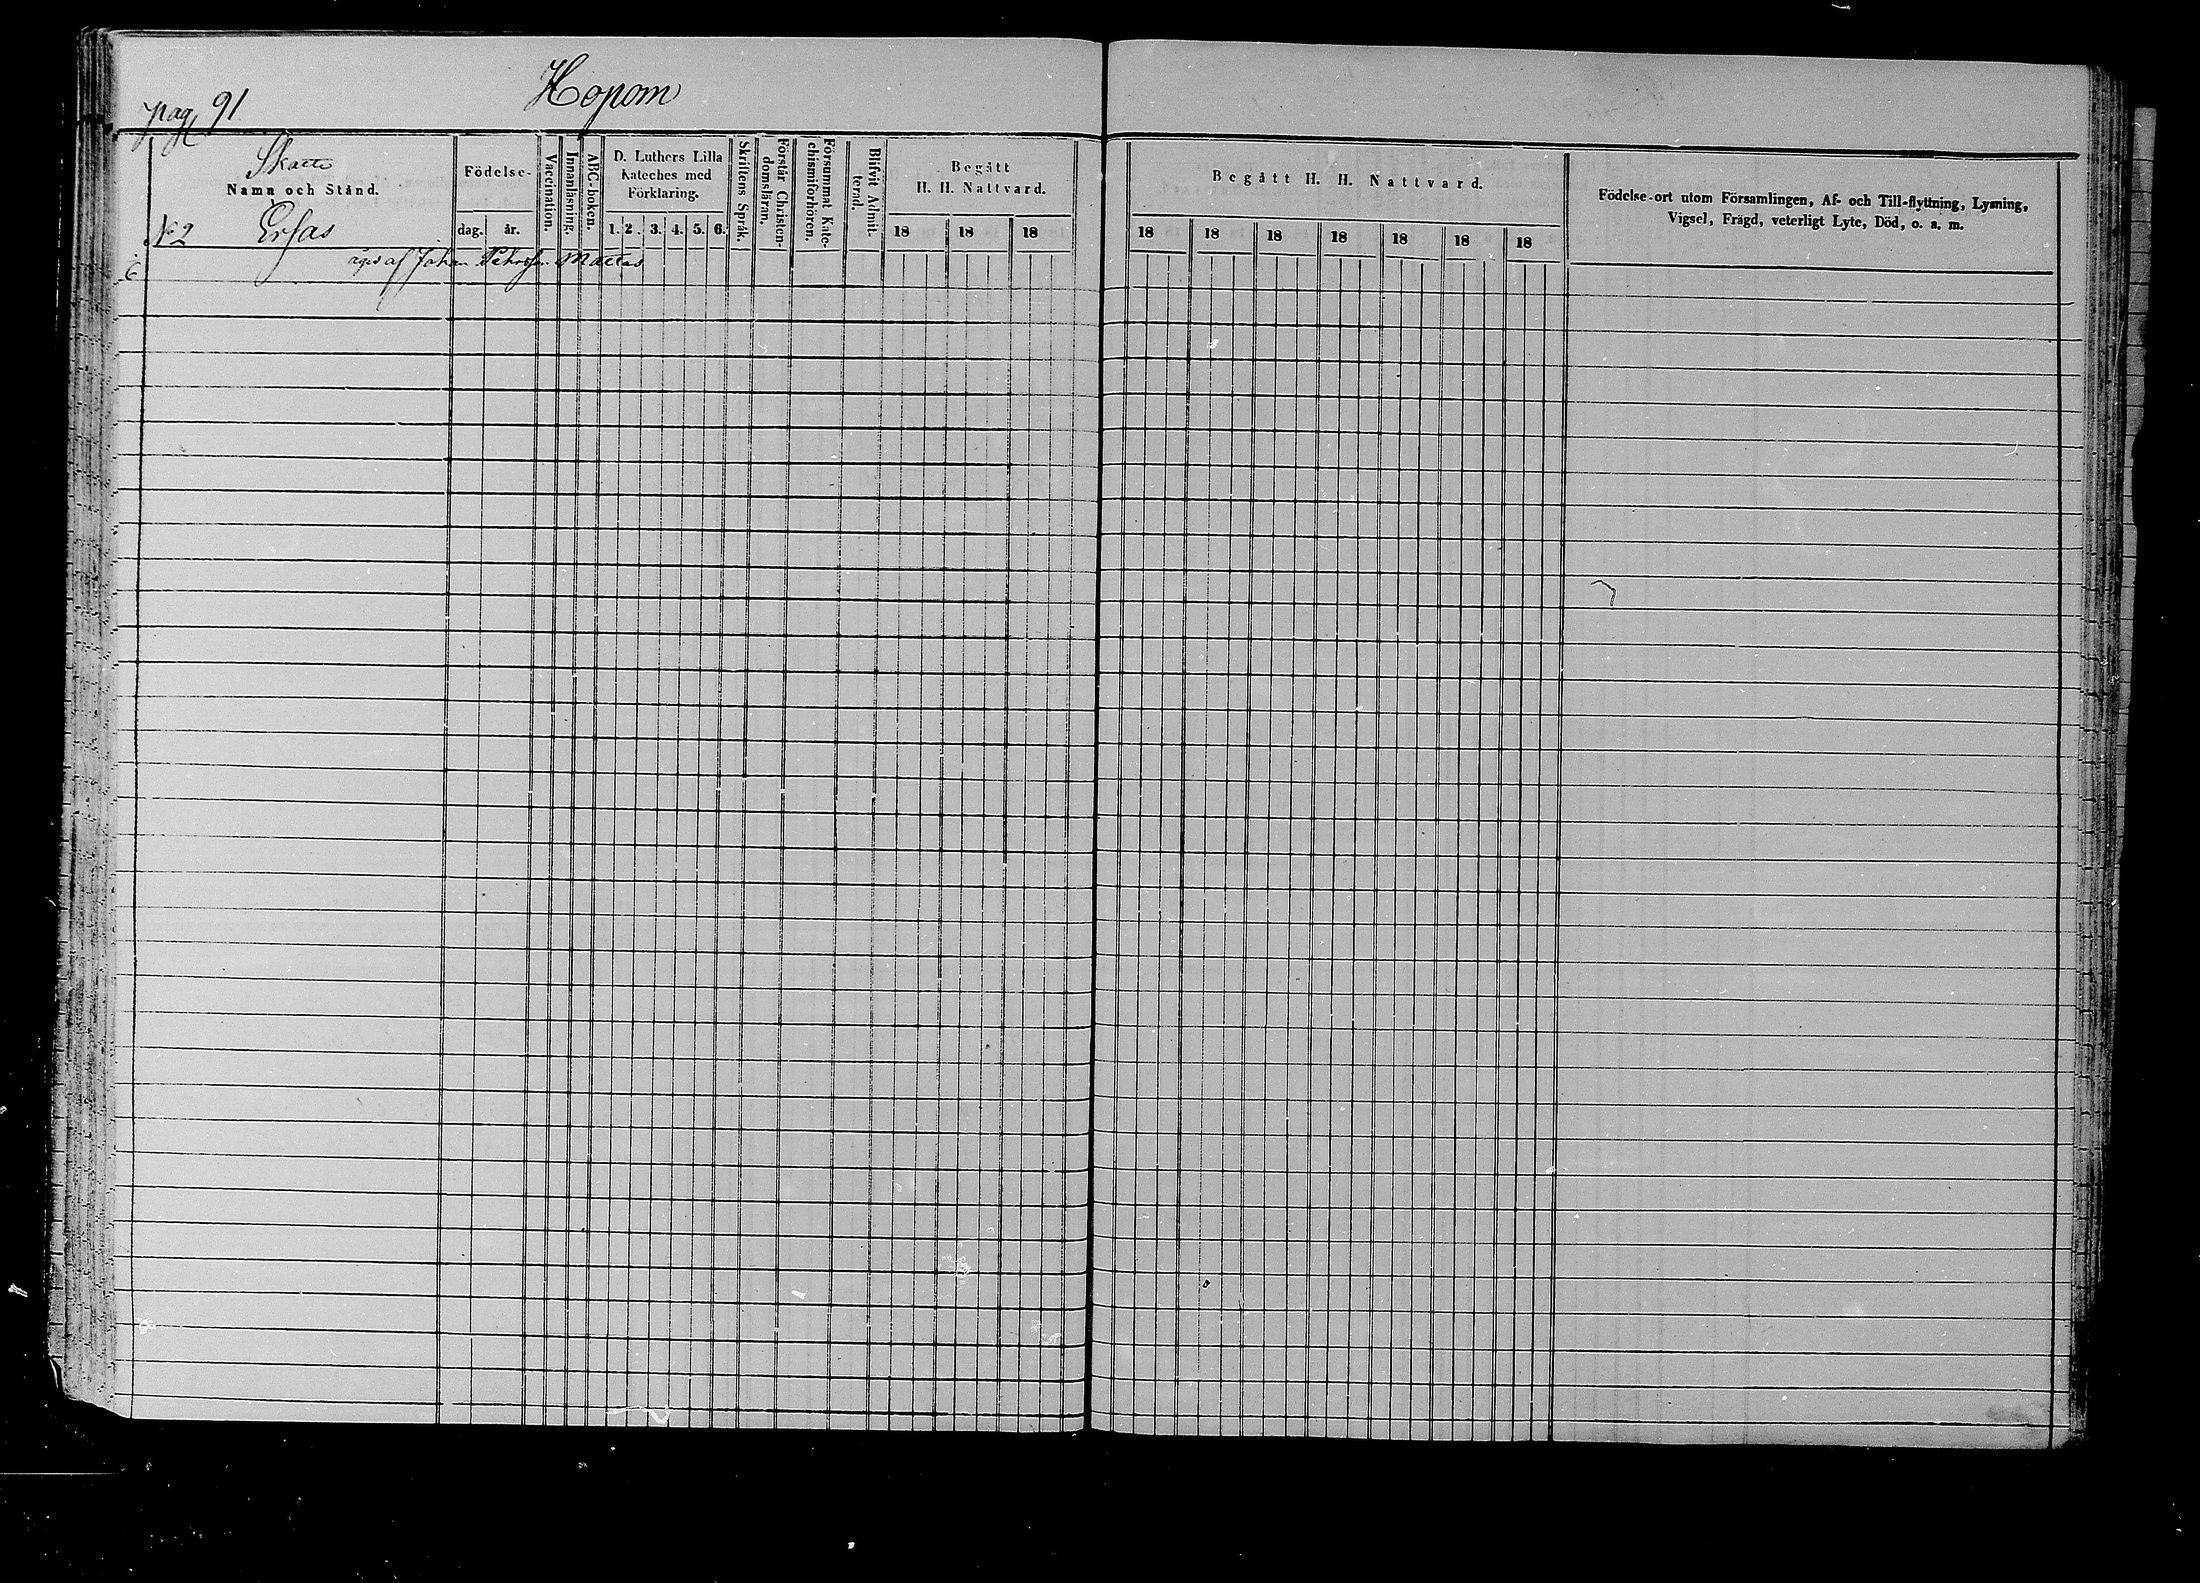 pag 91
Hopom
Skatte
Namn och Stånd.
No 2 Ersas
Födelse-
dag. år.
Vaccination.
Innanläsning.
ABC-boken.
D. Luthers Lilla
Kateches med
Förklaring.
1. 2. 3. 4. 5. 6.
Skriftens Språk.
Förstår Christen-
domsläran.
Försummat Kate-
chismiförhören.
Blifvit Admit-
terad.
Begått
H. H. Nattvard.
18 18 18
äges af Johan Mattas
Begått H. H. Nattvard.
18 18 18 18 18 18 18
Födelse-ort utom Församlingen, Af- och Till-flyttning, Lysning,
Vigsel, Frägd, veterligt Lyte, Död, o. a. m.